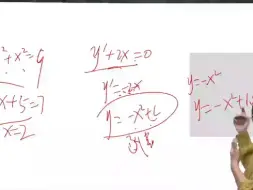 ² + x² = 9
x + 5 = 7
x = 2
y' + 2x = 0
y' = -2x
y = -x² + C
y = -x²
y = -x² + 1